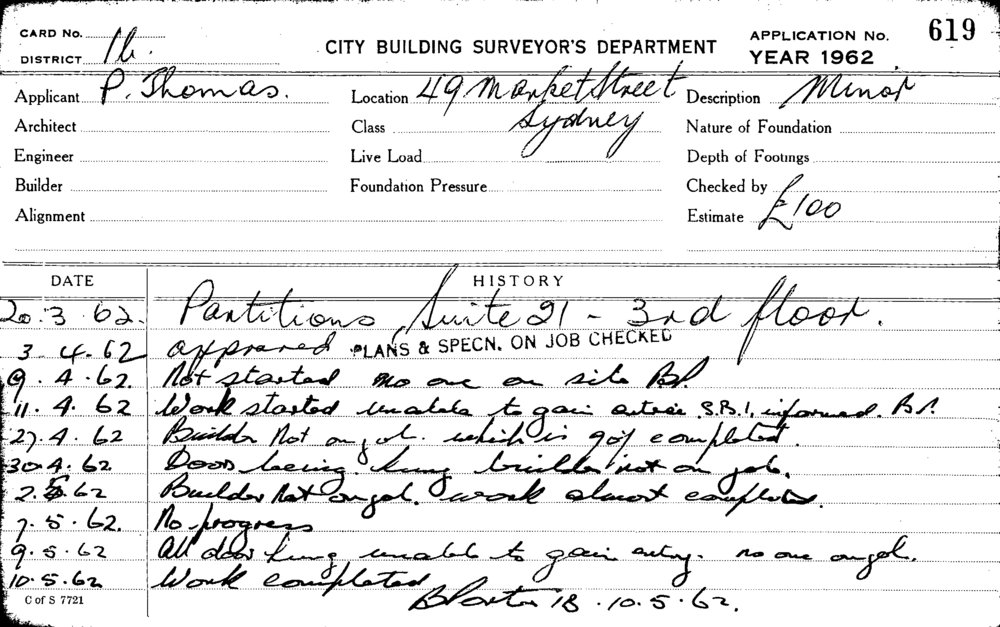 CARD No.
DISTRICT 16.
CITY BUILDING SURVEYOR'S DEPARTMENT
APPLICATION No. 619
YEAR 1962
Applicant P. Thomas. Location 49 Market Street Description Minor
Architect Class Sydney Nature of Foundation
Engineer Live Load Depth of Footings
Builder Foundation Pressure Checked by
Alignment Estimate £100
DATE HISTORY
20.3.62. Partitions, Suite 21 - 3rd floor.
3.4.62 approved PLANS & SPECN. ON JOB CHECKED
9.4.62. Not started no one on site BP
11.4.62 Work started unable to gain S.B.I. informed. B.P.
27.4.62 Builder Not on job. which is 90% completed.
30.4.62 Door being hung builder not on job.
2.5.62 Builder Not on job. work almost completed.
7.5.62. No progress
9.5.62 All door hung unable to gain entry. no one on job.
10.5.62 Work completed
B Porter 18.10.5.62.
C of S 7721